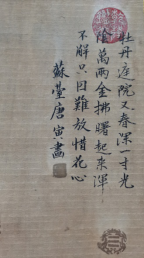 牡丹庭院又春深一寸光
陰萬兩金拂曙起來渾
不解只因難放惜花心
蘇臺唐寅畵